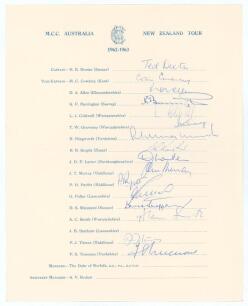 M.C.C. AUSTRALIA NEW ZEALAND TOUR
1962-1963
CAPTAIN—E. R. Dexter (Sussex) Ted Dexter
VICE-CAPTAIN—M. C. Cowdrey (Kent) Colin Cowdrey
D. A. Allen (Gloucestershire)
K. F. Barrington (Surrey)
L. J. Coldwell (Worcestershire)
T. W. Graveney (Worcestershire)
R. Illingworth (Yorkshire)
B. R. Knight (Essex)
J. D. F. Larter (Northamptonshire)
J. T. Murray (Middlesex) John Murray
P. H. Parfitt (Middlesex)
G. Pullar (Lancashire)
D. S. Sheppard (Sussex) David Sheppard
A. C. Smith (Warwickshire) Alan Smith
J. B. Statham (Lancashire)
F. J. Titmus (Middlesex)
F. S. Trueman (Yorkshire) F S Trueman
MANAGER—The Duke of Norfolk
ASSISTANT MANAGER—A. V. Bedser